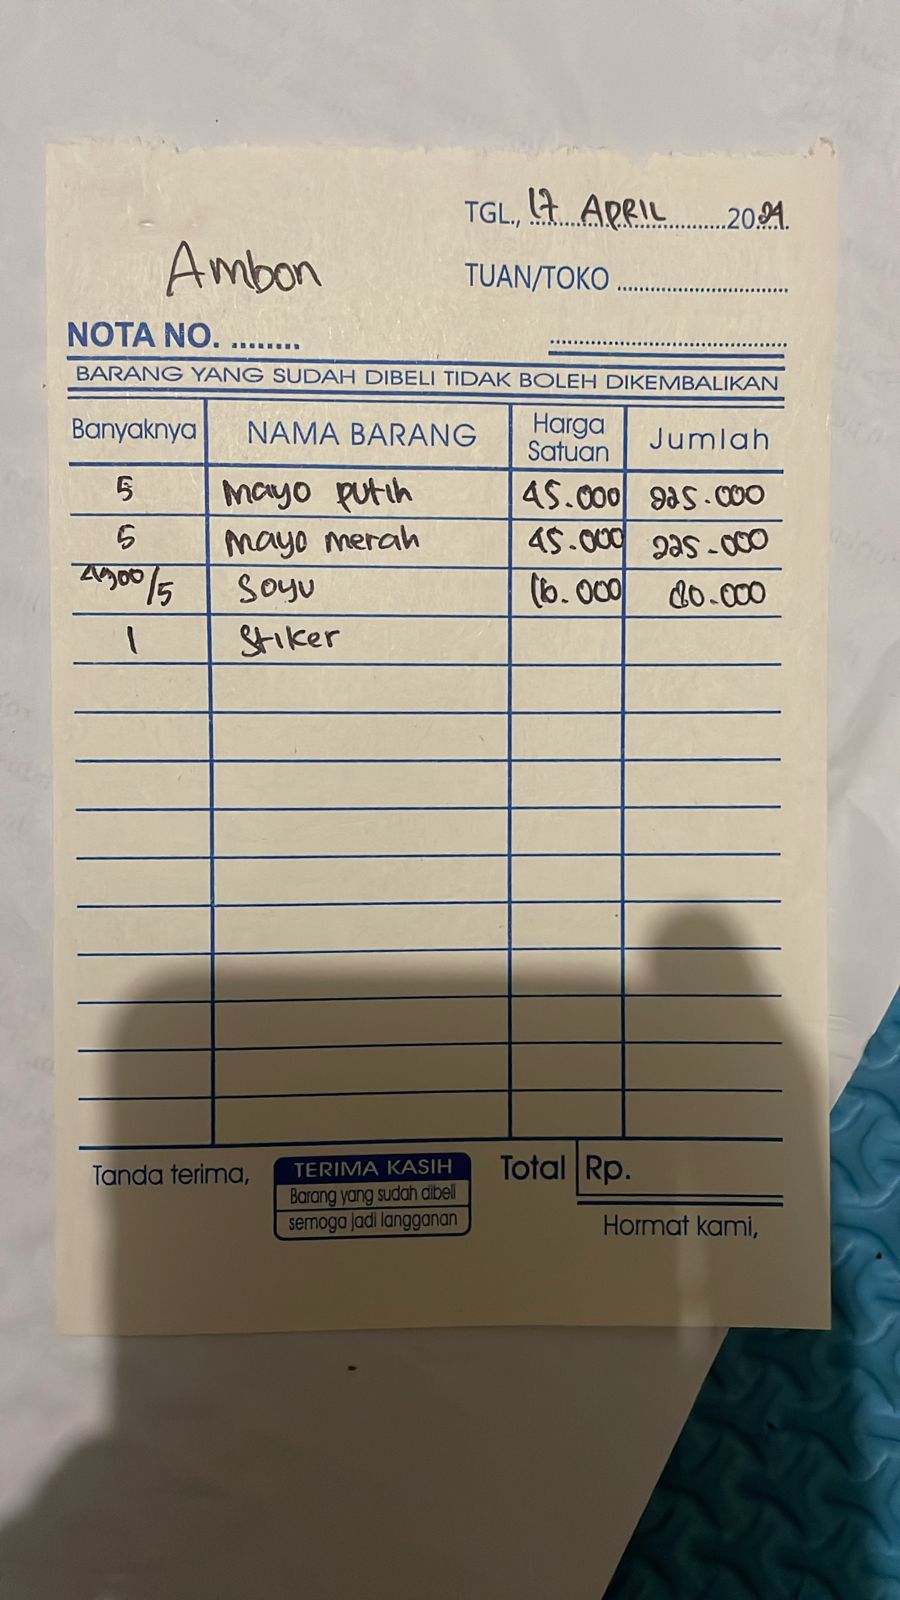 TGL., 17 APRIL 2024.
Ambon
TUAN/TOKO
NOTA NO.
BARANG YANG SUDAH DIBELI TIDAK BOLEH DIKEMBALIKAN
Banyaknya NAMA BARANG Harga Satuan Jumlah
5 Mayo putih 45.000 225.000
5 Mayo merah 45.000 225.000
/5 Soyu 16.000 80.000
1 Stiker
Tanda terima,
TERIMA KASIH
Barang yang sudah dibeli
semoga jadi langganan
Total Rp.
Hormat kami,